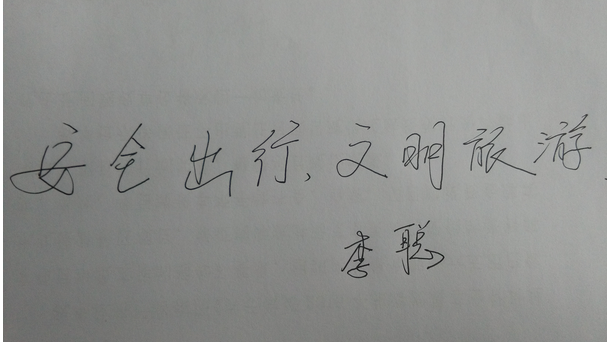 安全出行、文明旅游.
李聪